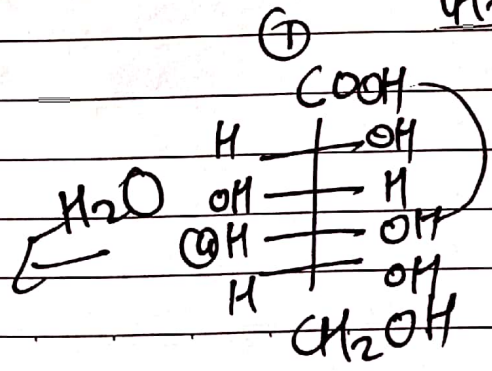 +
COOH
H OH
H₂O OH H
H OH
H OH
CH₂OH